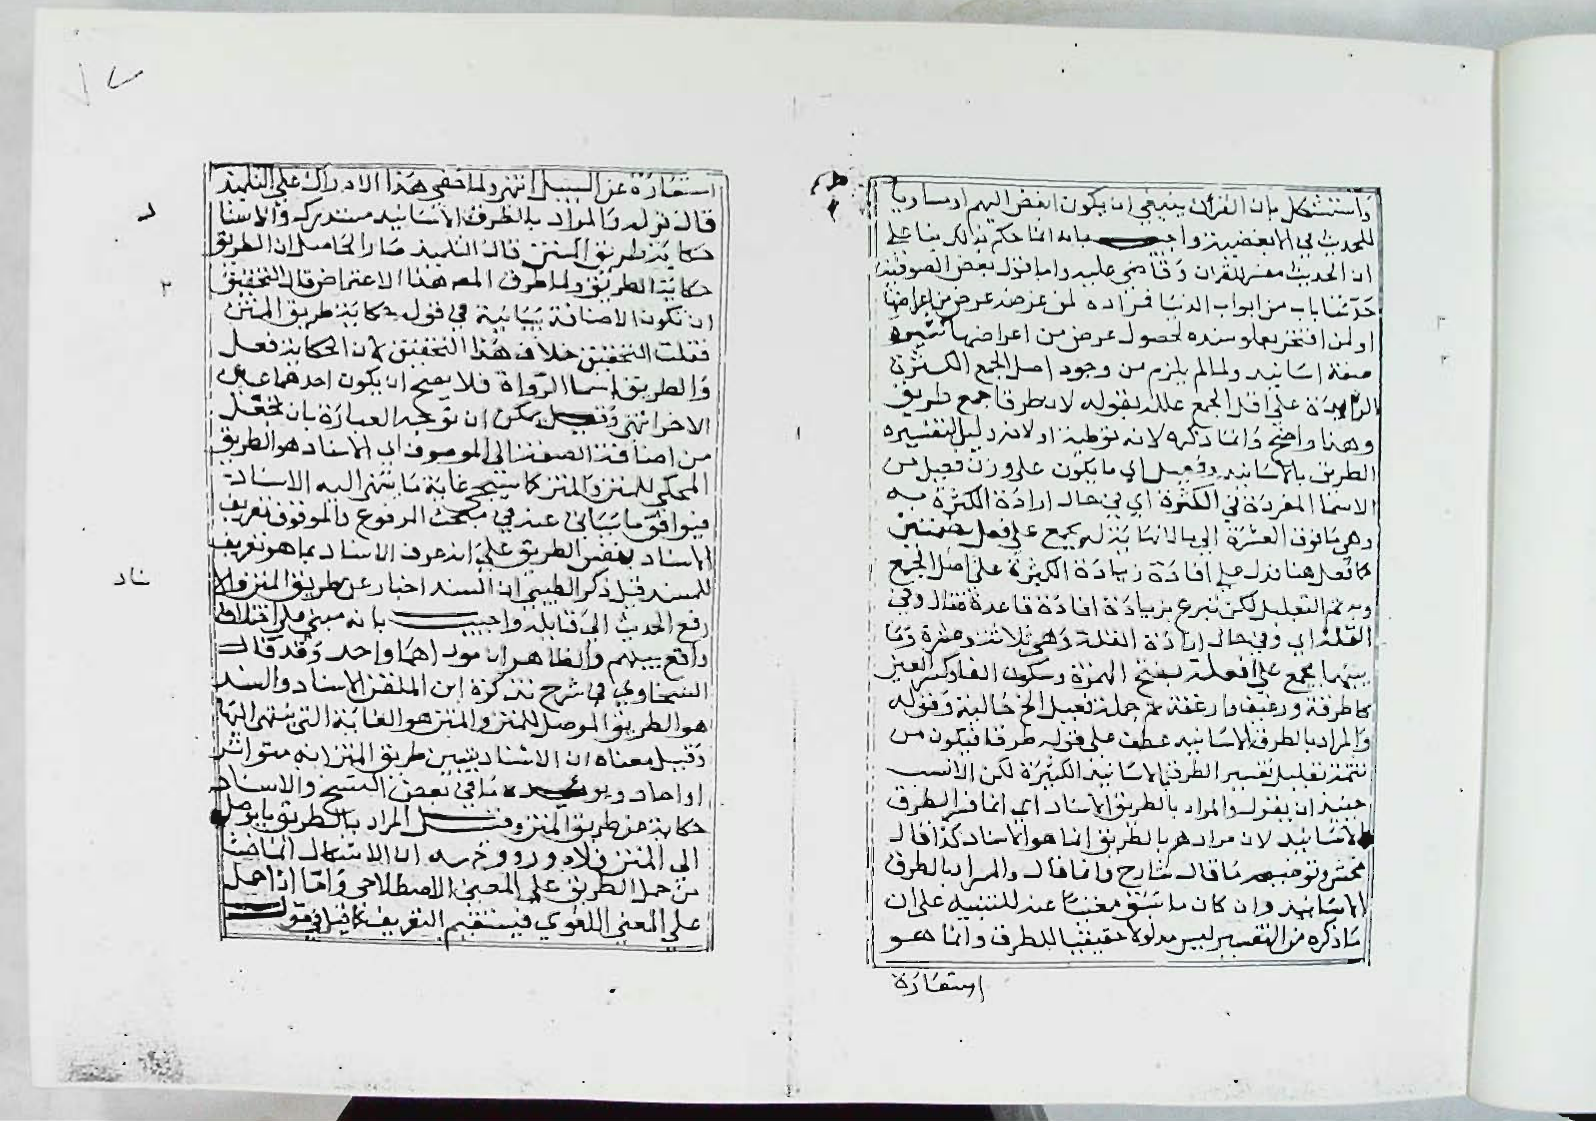 واستشكل بان القرآن ينبغي ان يكون ابغض اليهم او مساويا
للحديث في الابغضية واجيب بانه انما حكم بذلك بنا على
ان الحديث مفسر للقران وقاضي عليه واما قول بعض الصوفية
حدثنا باب من ابواب الدنيا فمراده لمن عرضه عرض من اعراضها
او لمن افتخر بعلو سنده لحصول عرض من اعراضها كثيرة
صفة اسانيد ولما لم يلزم من وجود اصل الجمع الكثرة
الزايدة على اقل الجمع علله بقوله لان طرقا جمع طريق
وهنا واضح وانما ذكره لانه توطية او لانه دليل لتفسيره
الطرق بالاسانيد وفعيل اي ما يكون على وزن فعيل من
الاسما المفردة في الكثرة اي في حال ارادة الكثرة به
وهي ما فوق العشرة الى ما لا نهاية له يجمع على فعل بضمتين
كا فعل هنا فدل على افادة زيادة الكثرة على اصل الجمع
وبه تم التعليل لكن تبرع بزيادة افادة قاعدة فقال وفي
القلة اي وفي حال ارادة القلة وهي ثلاثة وعشرة وما
بينهما يجمع على افعلة بفتح الهمزة وسكون الفا وكسر العين
كاطرقة ورغيف وارغفة ثم جملة فعيل الخ حالية وقوله
والمراد بالطرق الاسانيد عطف على قوله طرقا فيكون من
تتمة تعليل تفسير الطرق بالاسانيد الكثيرة لكن الانسب
حينيذ ان يقول والمراد بالطريق الاسناد اي انما فسر الطرق
بالاسانيد لان مرادهم بالطريق انما هو الاسناد كذا قال
محشي وتوضيحه ما قال شارح وانما قال والمراد بالطرق
الاسانيد وان كان ما سبق مغنيا عنه للتنبيه على ان
ما ذكره من التفسير ليس مدلولا حقيقيا للطرق وانما هو
استعارة
استعارة عن السبيل انتهى ولما خفي هذا الادراك على التلميذ
قال قوله والمراد بالطرق الاسانيد مستدركه والاسنا
حكاية طريق المتن قال التلميذ صار الحاصل ان الطريق
حكاية الطريق ولما طرق المص هذا الاعتراض قال التحقيق
ان تكون الاضافة بيانية في قوله حكاية طريق المتن
فقلت التحقيق خلاف هذا التحقيق لان الحكاية فعل
والطريق اسما الرواة فلا يصح ان يكون احدهما عين
الاخر انتهى وقيل يمكن ان توجه العبارة بان تجعل
من اضافة الصفة الى الموصوف اي الاسناد هو الطريق
المحكي للمتن والمتن كما سيجي غاية ما ينتهي اليه الاسناد
فيوافق ما سياتي عنه في مبحث المرفوع والموقوف تعريف
الاسناد بنفس الطريق على انه عرف الاسناد بما هو تعريف
للسند فقيل ذكر الطيبي ان السند اخبار عن طريق المتن والا
رفع الحديث الى قايله واجيب بانه مبني على اختلاف
واقع بينهم والظاهر ان موداهما واحد وقد قال
السخاوي في شرح تذكرة ابن الملقن الاسناد والسند
هو الطريق الموصل للمتن والمتن هو الغاية التي ينتهي اليها
وقيل معناه ان الاسناد يتبين طريق المتن انه متواتر
او احاد ويويده ما في بعض النسخ والاسناد
حكاية عن طريق المتن وقيل المراد بالطريق ما يوصل
الى المتن فلا دور وفيه ان الاشكال انما نشا
من حمل الطريق على المعنى الاصطلاحي واما اذا حمل
على المعنى اللغوي فيستقيم التعريف كما قيل في قوله
ناد